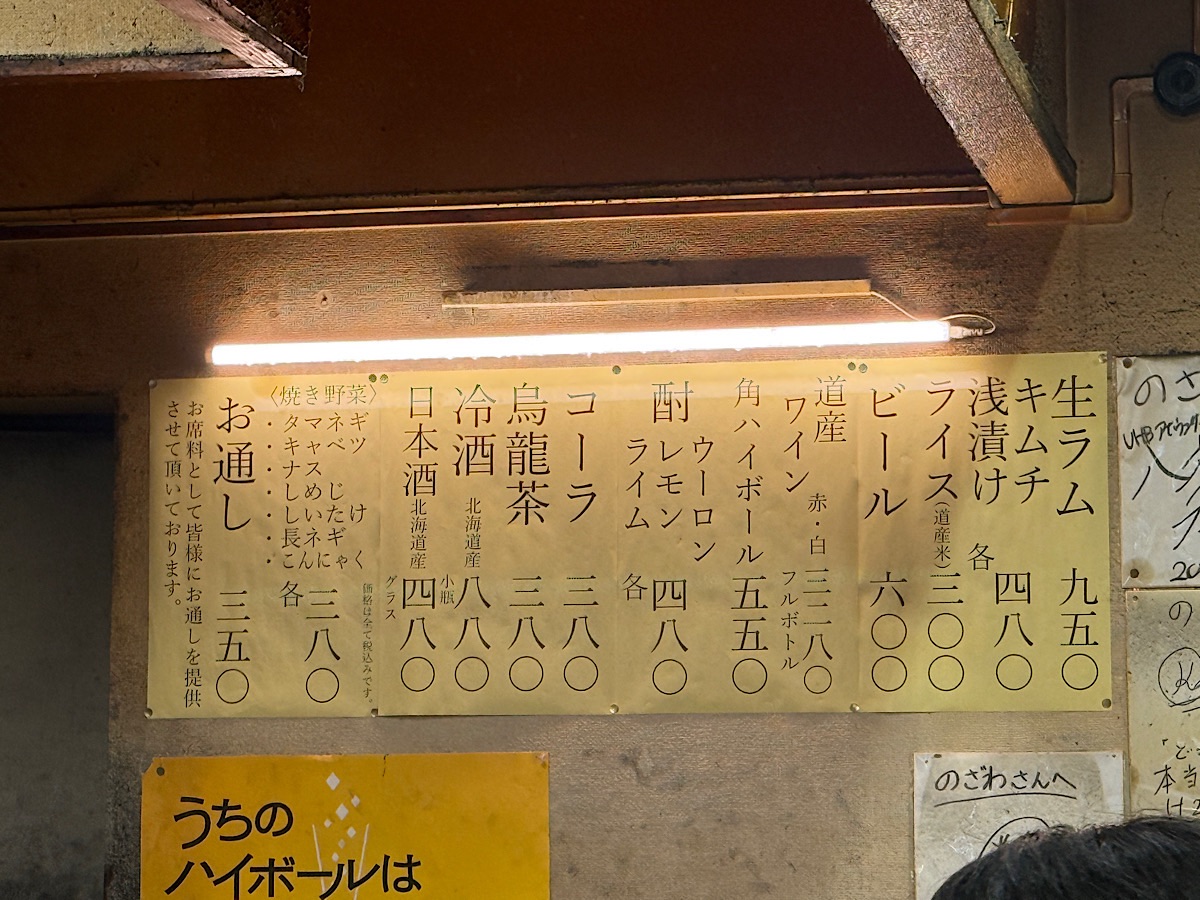 生ラム 九五〇
キムチ
浅漬け
各 四八〇
ライス(道産米) 三〇〇
ビール 六〇〇
道産
ワイン
赤・白 三二八〇
フルボトル
角ハイボール 五五〇
酎
ウーロン
レモン
ライム
各 四八〇
コーラ 三八〇
烏龍茶 三八〇
冷酒 北海道産 八八〇
小瓶
日本酒 北海道産 四八〇
グラス
価格は全て税込みです
〈焼き野菜〉
ギツ じけく
ネベ たギゃ
マャスめいネんに
タキナしし長こ
・・・・・・・
各 三八〇
お通し 三五〇
お席料として皆様にお通しを提供
させて頂いております。
うちの
ハイボールは
のざわさんへ
のざ
UHB
20
の
本当
け